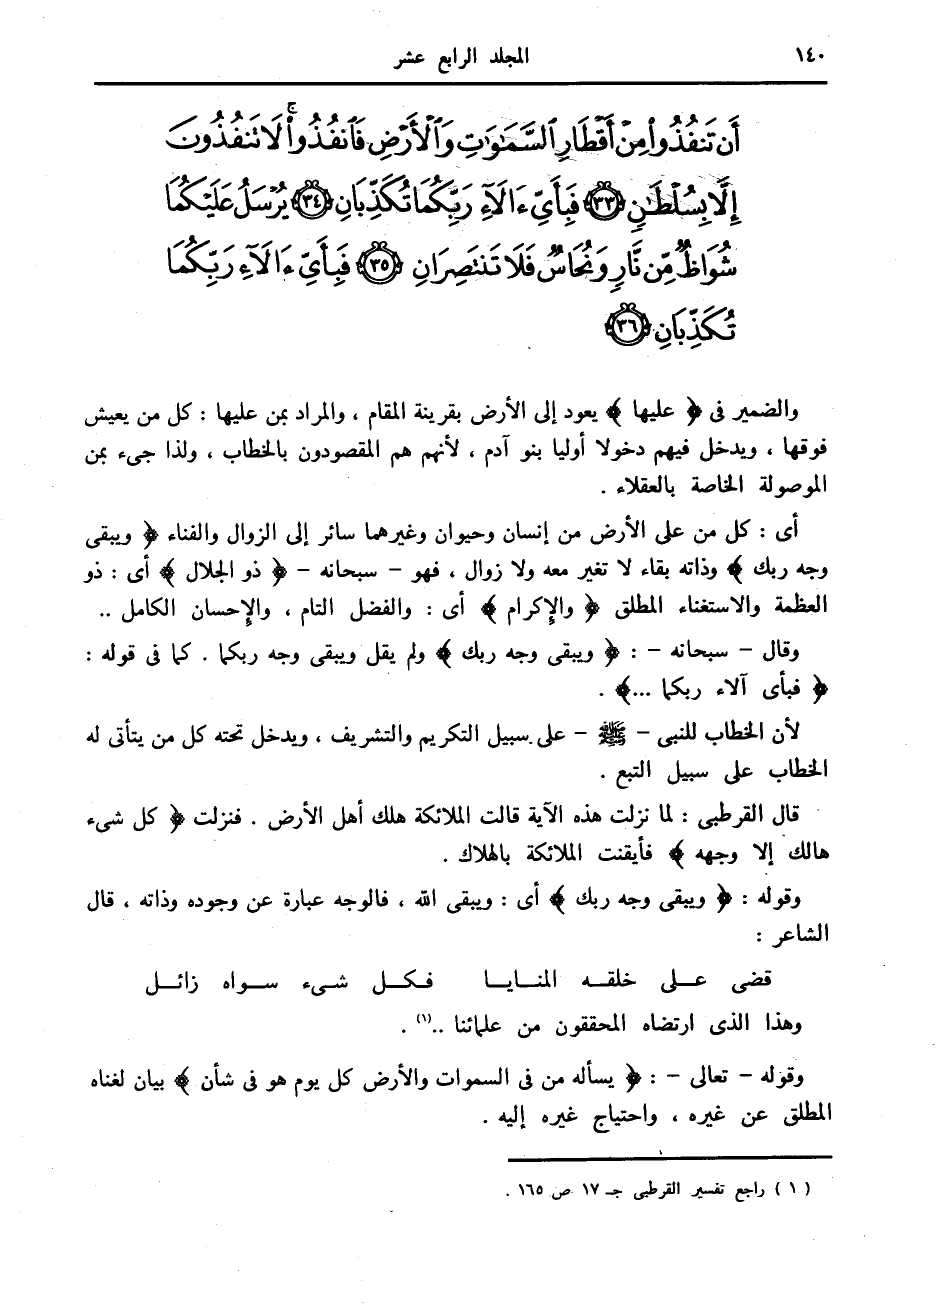 ١٤٠
المجلد الرابع عشر
أَن تَنفُذُوا۟ مِنْ أَقْطَارِ ٱلسَّمَـٰوَٰتِ وَٱلْأَرْضِ فَٱنفُذُوا۟ ۚ لَا تَنفُذُونَ
إِلَّا بِسُلْطَـٰنٍ ﴿٣٣﴾ فَبِأَىِّ ءَالَآءِ رَبِّكُمَا تُكَذِّبَانِ ﴿٣٤﴾ يُرْسَلُ عَلَيْكُمَا
شُوَاظٌ مِّن نَّارٍ وَنُحَاسٌ فَلَا تَنتَصِرَانِ ﴿٣٥﴾ فَبِأَىِّ ءَالَآءِ رَبِّكُمَا
تُكَذِّبَانِ ﴿٣٦﴾
والضمير فى ﴿ عليها ﴾ يعود إلى الأرض بقرينة المقام ، والمراد بمن عليها : كل من يعيش
فوقها ، ويدخل فيهم دخولا أوليا بنو آدم ، لأنهم هم المقصودون بالخطاب ، ولذا جىء بمن
الموصولة الخاصة بالعقلاء .
أى : كل من على الأرض من إنسان وحيوان وغيرهما سائر إلى الزوال والفناء ﴿ ويبقى
وجه ربك ﴾ وذاته بقاء لا تغير معه ولا زوال ، فهو – سبحانه – ﴿ ذو الجلال ﴾ أى : ذو
العظمة والاستغناء المطلق ﴿ والإكرام ﴾ أى : والفضل التام ، والإحسان الكامل ..
وقال – سبحانه – : ﴿ ويبقى وجه ربك ﴾ ولم يقل ويبقى وجه ربكما . كما فى قوله :
﴿ فبأى آلاء ربكما ...﴾ .
لأن الخطاب للنبى – ﷺ – على سبيل التكريم والتشريف ، ويدخل تحته كل من يتأتى له
الخطاب على سبيل التبع .
قال القرطبى : لما نزلت هذه الآية قالت الملائكة هلك أهل الأرض . فنزلت ﴿ كل شىء
هالك إلا وجهه ﴾ فأيقنت الملائكة بالهلاك .
وقوله : ﴿ ويبقى وجه ربك ﴾ أى : ويبقى الله ، فالوجه عبارة عن وجوده وذاته ، قال
الشاعر :
قضى عــلى خلقــه المنــايــا فكــل شــىء ســواه زائــل
وهذا الذى ارتضاه المحققون من علمائنا ..(١) .
وقوله – تعالى – : ﴿ يسأله من فى السموات والأرض كل يوم هو فى شأن ﴾ بيان لغناه
المطلق عن غيره ، واحتياج غيره إليه .
( ١ ) راجع تفسير القرطبى جـ ١٧ ص ١٦٥ .